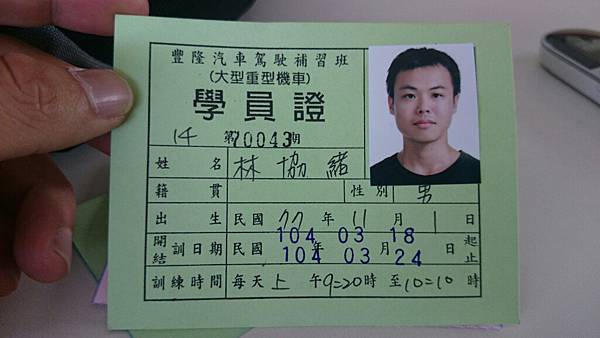 豐隆汽車駕駛補習班
(大型重型機車)
學員證
14 第70043期
姓名 林協緒
籍貫 性別 男
出生 民國 77 年 11 月 1 日
開訓日期 民國 104 年 03 月 18 日 起
結 104 03 24 止
訓練時間 每天上午9=20時至10=10時